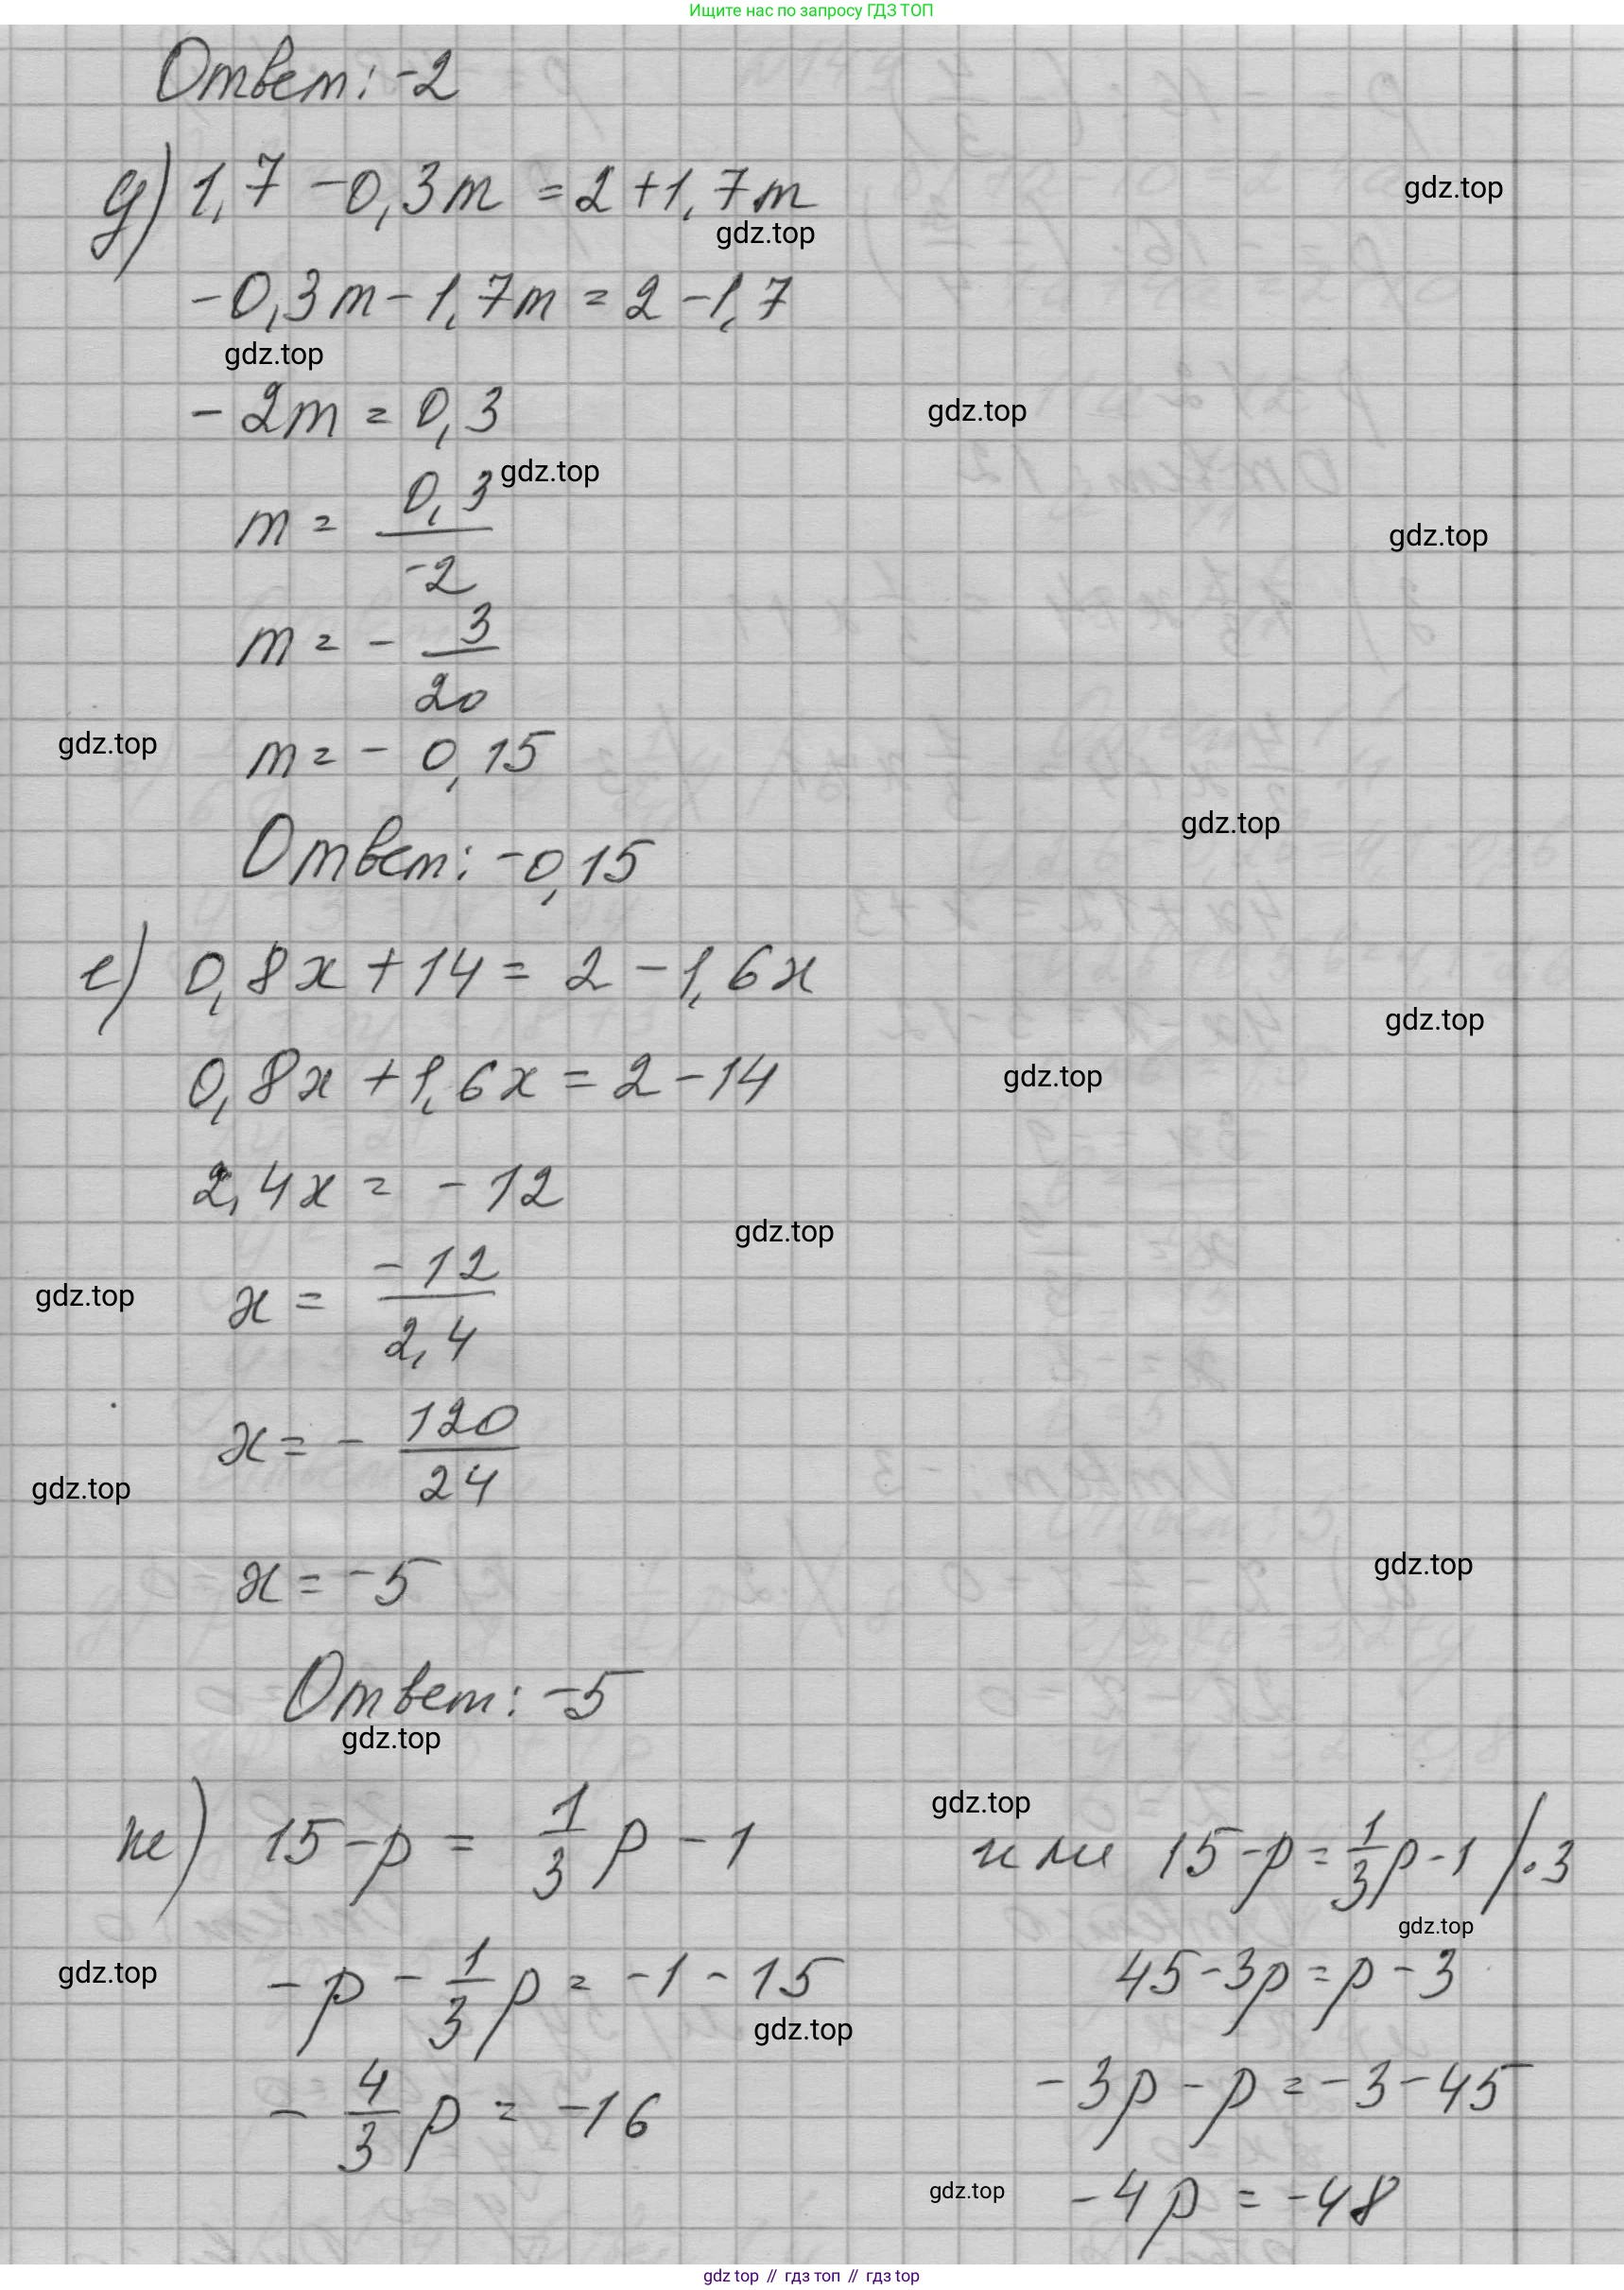 Ищите нас по запросу ГДЗ ТОП
Ответ: -2
д) 1,7 - 0,3m = 2 + 1,7m
gdz.top
gdz.top
-0,3m - 1,7m = 2 - 1,7
gdz.top
-2m = 0,3
gdz.top
gdz.top
m = 0,3/-2
gdz.top
m = - 3/20
gdz.top
m = - 0,15
gdz.top
Ответ: -0,15
е) 0,8x + 14 = 2 - 1,6x
gdz.top
0,8x + 1,6x = 2 - 14
gdz.top
2,4x = -12
gdz.top
x = -12/2,4
gdz.top
x = - 120/24
gdz.top
x = -5
gdz.top
Ответ: -5
gdz.top
gdz.top
ж) 15 - p = 1/3 p - 1
-p - 1/3 p = -1 - 15
gdz.top
gdz.top
- 4/3 p = -16
или 15 - p = 1/3 p - 1 /·3
gdz.top
45 - 3p = p - 3
-3p - p = -3 - 45
gdz.top
-4p = -48
gdz top // гдз топ // gdz top